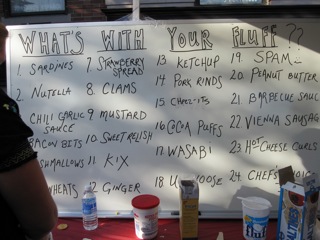 WHAT'S WITH YOUR FLUFF??
1. SARDINES
2. NUTELLA
CHILI GARLIC
SAUCE
BACON BITS
WHEATS
7. STRAWBERRY
SPREAD
8. CLAMS
9 MUSTARD
10. SWEET RELISH
11. KIX
12 GINGER
13 KETCHUP
14 PORK RINDS
15 CHEEZ-ITS
16 COCOA PUFFS
17. WASABI
18. U OOSE
19. SPAM
20. PEANUT BUTTER
21. BARBECUE SAUCE
22 VIENNA SAUSAG
23 HOT CHEESE CURLS
24 CHEF'S
Fluff